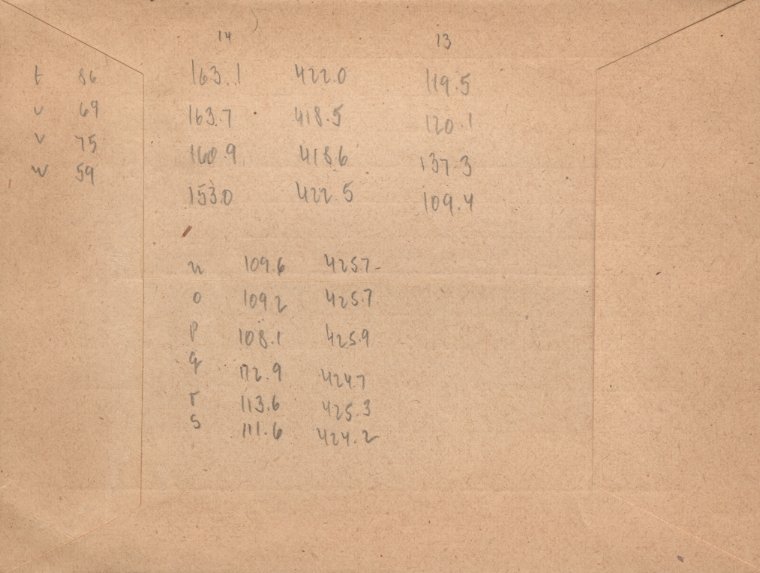 14 13
t 86 163.1 422.0 119.5
u 69 163.7 418.5 120.1
v 75 160.9 418.6 137.3
w 59 153.0 422.5 109.4
n 109.6 425.7
o 109.2 425.7
p 108.1 425.9
q 112.9 424.7
r 113.6 425.3
s 111.6 424.2